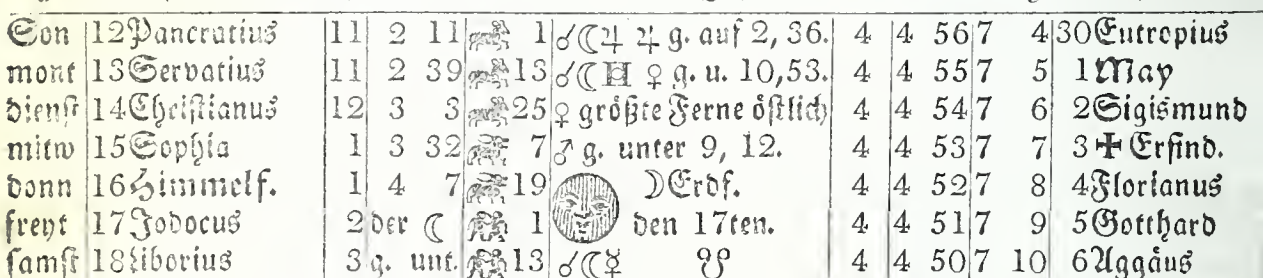 Son 12 Pancratius 11 2 11 1 ☌☾♃ ♃ g. auf 2, 36. 4 4 56 7 4 30 Eutropius
mont 13 Servatius 11 2 39 13 ☌☾♅ ♀ g. u. 10,53. 4 4 55 7 5 1 May
dienst 14 Christianus 12 3 3 25 ♀ größte Ferne östlich 4 4 54 7 6 2 Sigismund
mitw 15 Sophia 1 3 32 7 ♂ g. unter 9, 12. 4 4 53 7 7 3 ✠ Erfind.
donn 16 Himmelf. 1 4 7 19 ☽ Erdf. 4 4 52 7 8 4 Florianus
freyt 17 Jodocus 2 der ☾ 1 den 17ten. 4 4 51 7 9 5 Gotthard
samst 18 Liborius 3 g. unt. 13 ☌☾☿ ☋ 4 4 50 7 10 6 Aggäus